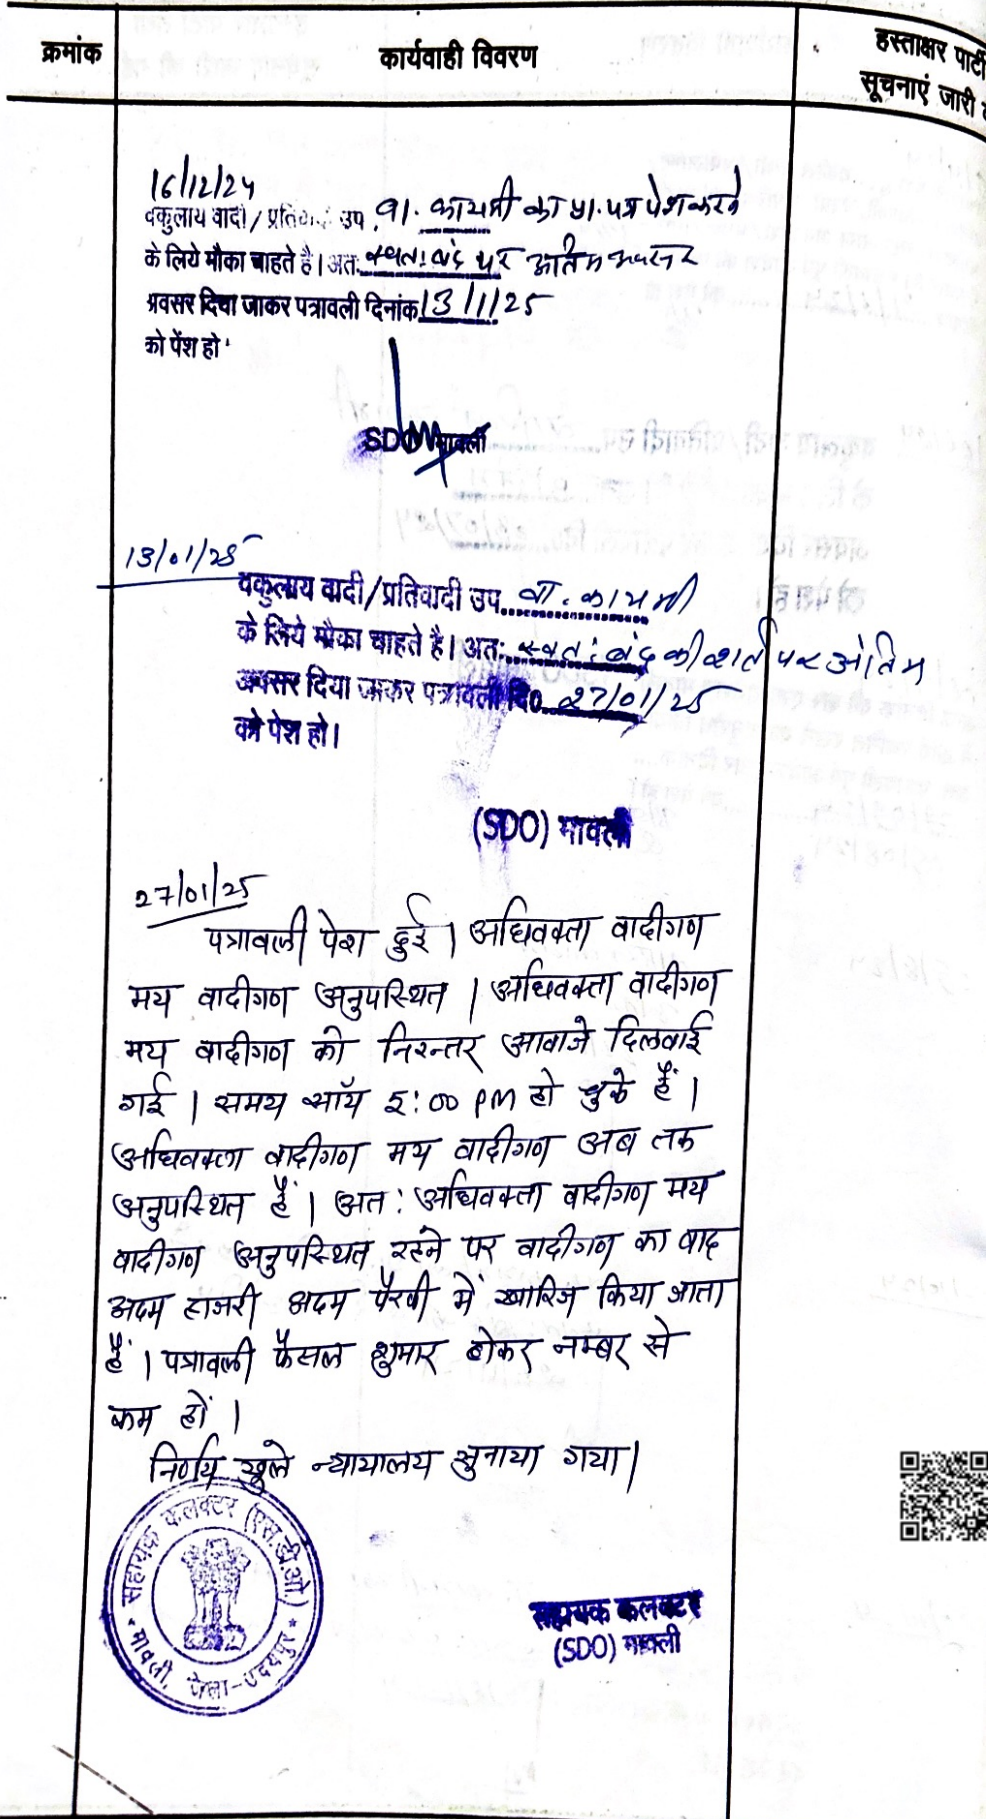 क्रमांक
कार्यवाही विवरण
हस्ताक्षर पार्टी
सूचनाएं जारी
16/12/24
वकुलाय वादी / प्रतिवादी उप. वा. कायमी का प्रा. पत्र पेश करने
के लिये मौका चाहते है। अतः स्वतः बंद पर अंतिम अवसर
अवसर दिया जाकर पत्रावली दिनांक 13/1/25
को पेंश हो
SDO मावली
13/01/25
वकुलाय वादी/प्रतिवादी उप. वा. कायमी
के लिये मौका चाहते है। अतः स्वतः बंद की शर्त पर अंतिम
अवसर दिया जाकर पत्रावली दि0 27/01/25
को पेश हो।
(SDO) मावली
27/01/25
पत्रावली पेश हुई। अधिवक्ता वादीगण
मय वादीगण अनुपस्थित। अधिवक्ता वादीगण
मय वादीगण को निरन्तर आवाजे दिलवाई
गई। समय सॉय 5:00 PM हो चुके हैं।
अधिवक्ता वादीगण मय वादीगण अब तक
अनुपस्थित हैं। अत: अधिवक्ता वादीगण मय
वादीगण अनुपस्थित रहने पर वादीगण का वाद
अदम हाजरी अदम पैरवी में खारिज किया जाता
हैं। पत्रावली फैसल शुमार होकर नम्बर से
कम हों।
निर्णय खुले न्यायालय सुनाया गया।
सहायक कलक्टर (एस.डी.ओ.)
मावली, जिला-उदयपुर
सहायक कलक्टर
(SDO) मावली